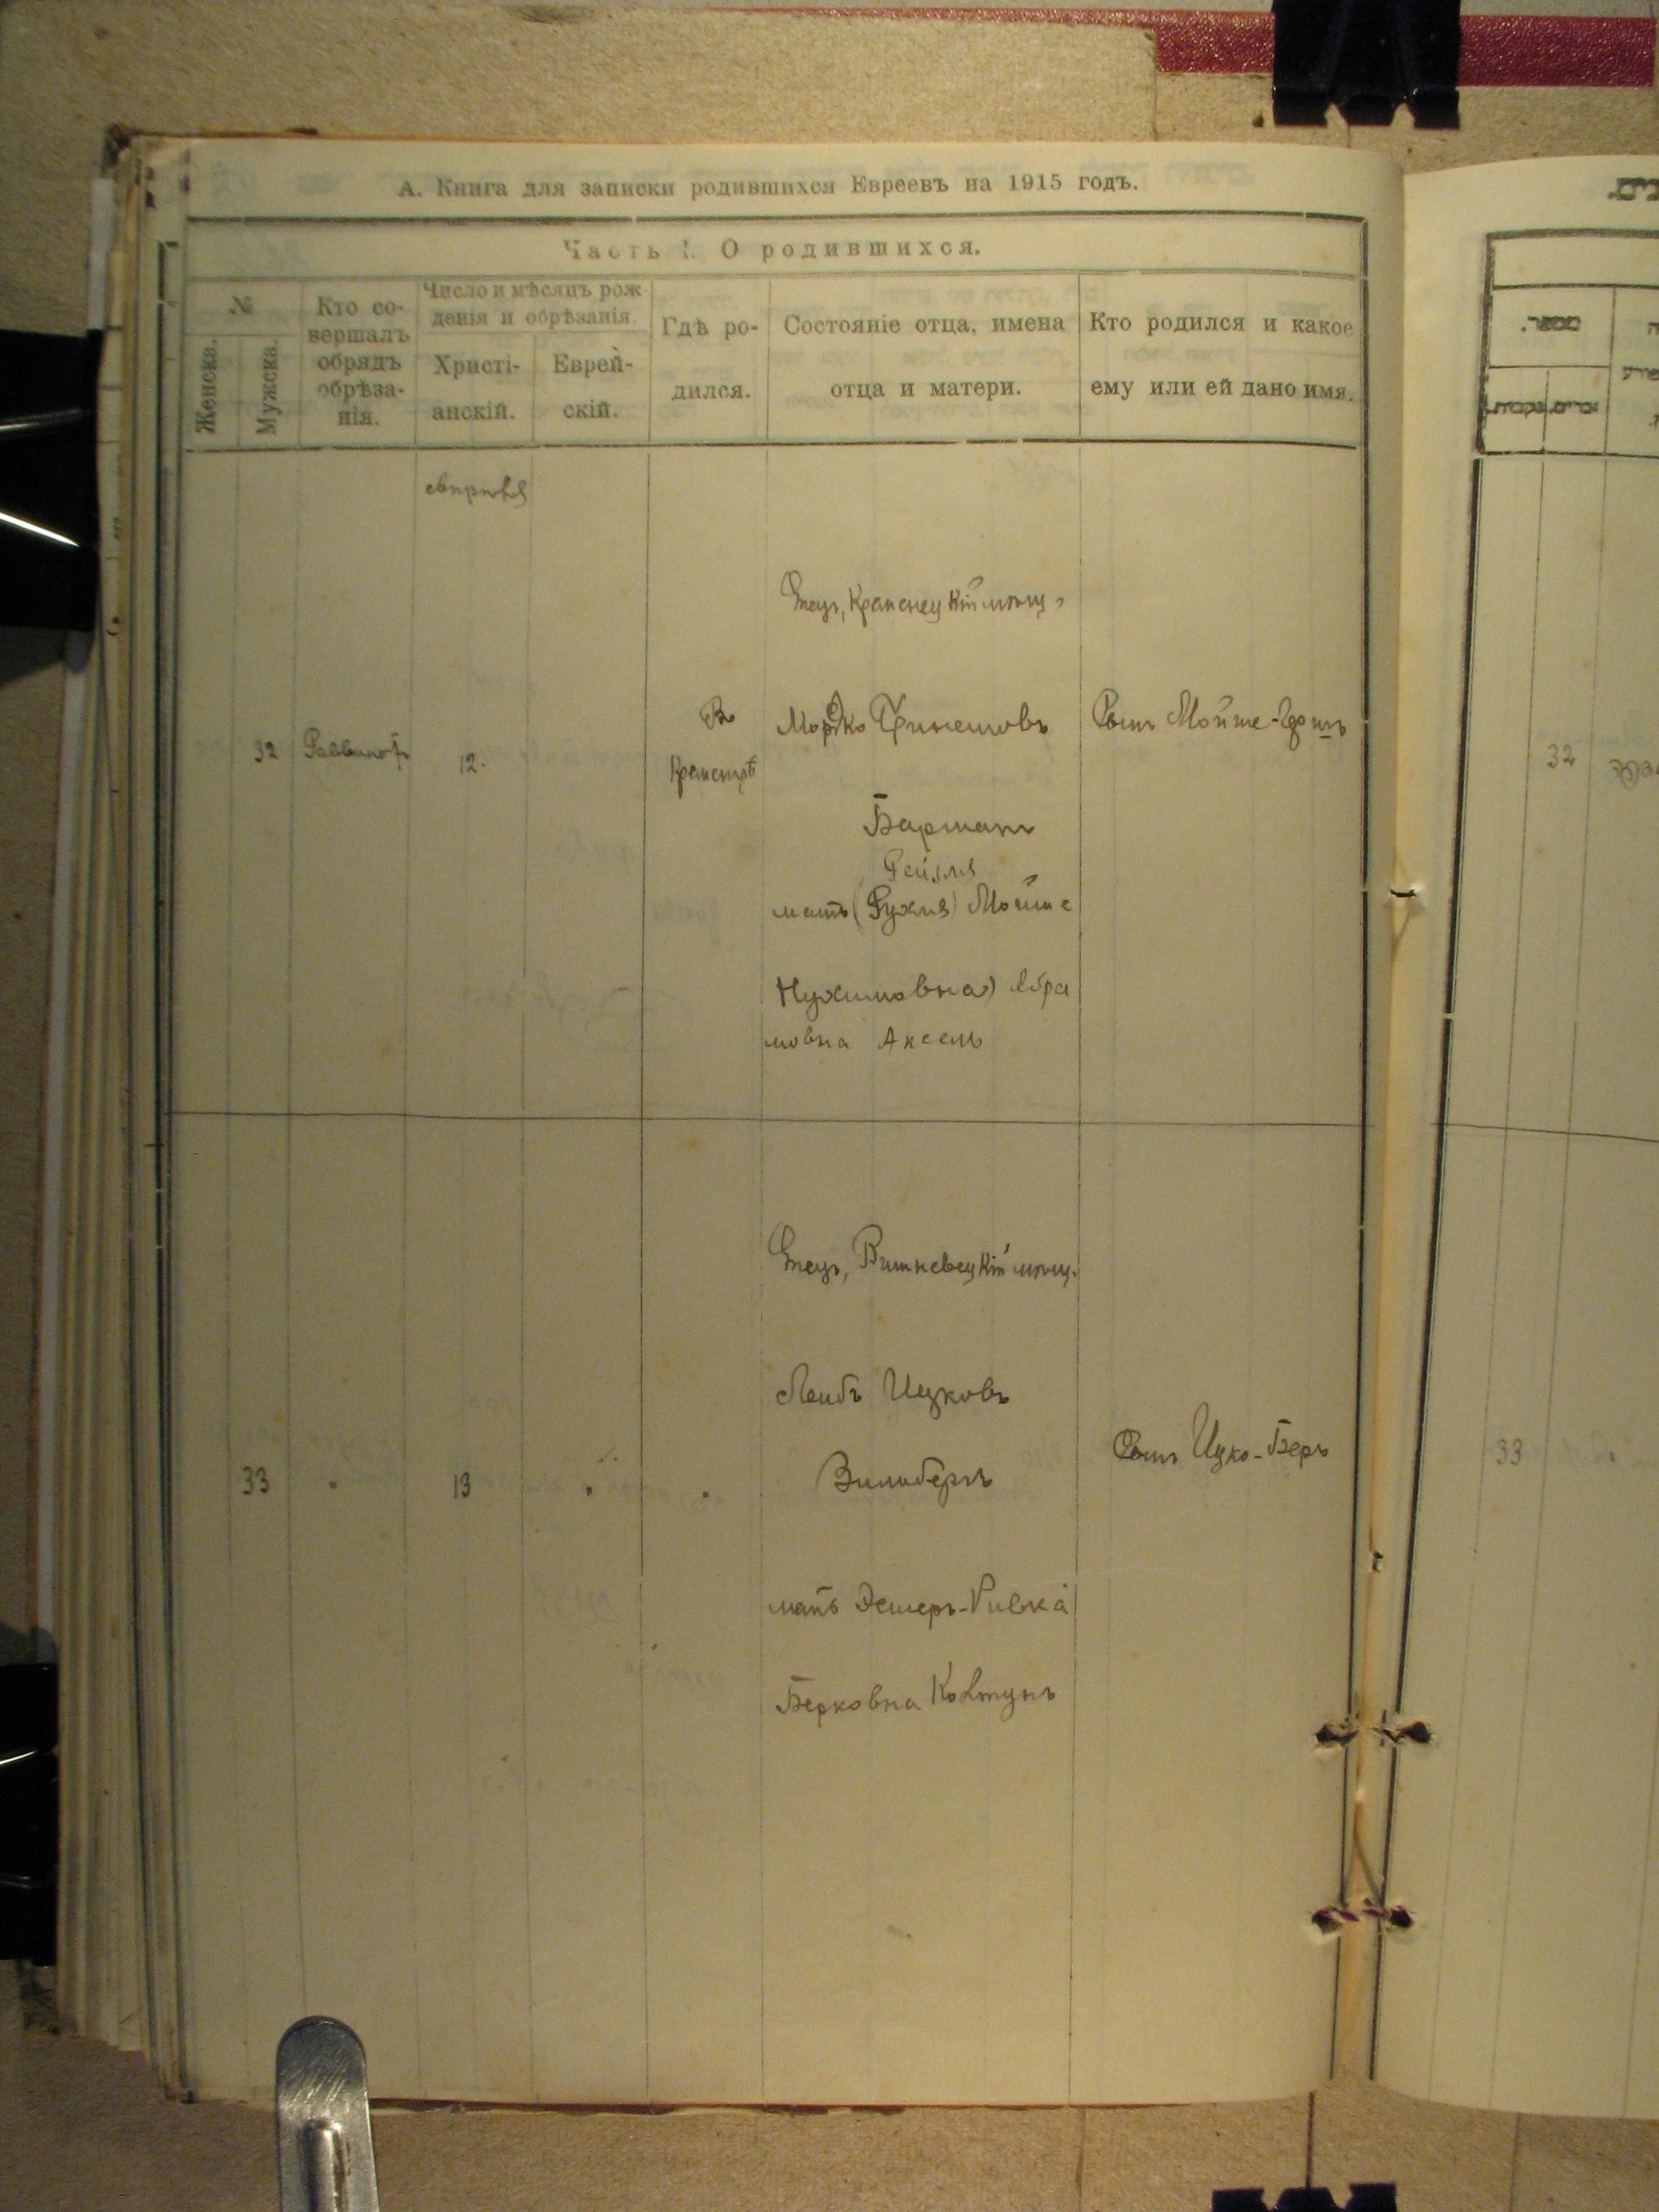 А. Книга для записки родившихся Евреевъ на 1915 годъ.
Часть I. О родившихся.
№
Женска.
Мужска.
Кто со-
вершалъ
обрядъ
обрѣза-
нія.
Число и мѣсяцъ рож
денія и обрѣзанія.
Христі-
анскій.
Еврей-
скій.
Гдѣ ро-
дился.
Состояніе отца, имена
отца и матери.
Кто родился и какое
ему или ей дано имя.
апрѣля
32
12.
Въ
Отецъ,
Мордко
Барманъ
Рейзля
мать (Рухля) Мойше
Нухимовна) Абра
мовна Аксель
Сынъ Мойше-
33
13
Отецъ, Вишневецкій мѣщ.
Лейбъ Ицковъ
Зильберъ
мать Эстеръ-Ривка
Берковна Колтунъ
Сынъ Ицко-Беръ
32
33